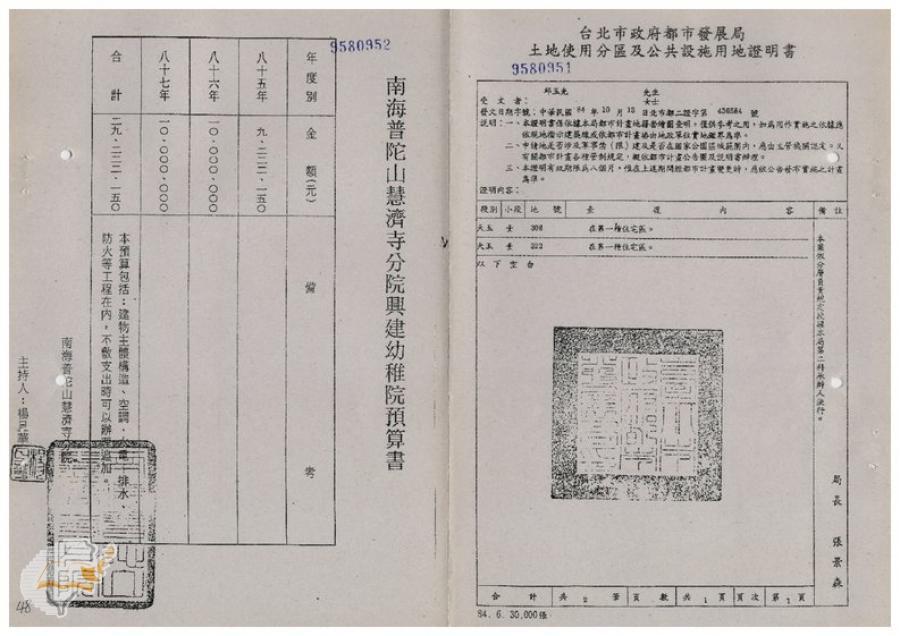 9580952
南海普陀山慧濟寺分院興建幼稚院預算書
年度別 金額(元) 備考
八十五年 九、二二二、一五〇
八十六年 一〇、〇〇〇、〇〇〇
八十七年 一〇、〇〇〇、〇〇〇
合計 二九、二二二、一五〇
本預算包括：建物主體構造、空調、水電、排水、
防火等工程在內，不敷支出時可以辦理追加。
南海普陀山慧濟寺分院
主持人：楊
48
台北市政府都市發展局
土地使用分區及公共設施用地證明書
9580951
受文者： 邱玉光 先生 女士
發文日期字號：中華民國84年10月13日北市都二證字第 號
說明：一、本證明書係依據本局都市計畫地籍套繪圖查明，僅供參考之用，如為用作實施之依據應
依現地指示建築線或依都市計畫樁由地政單位實地鑑界為準。
二、申請地是否涉及軍事禁（限）建及是否在國家公園區域範圍內，應由主管機關認定。又
有關都市計畫各種管制規定，擬依都市計畫公告圖及說明書辦理。
三、本證明有效期限為八個月，惟在上述期間經都市計畫變更時，應依公告發布實施之計畫
為準。
證明內容：
段別 小段 地號 查復內容 備註
天玉 壹 306 在第一種住宅區。
天玉 壹 322 在第一種住宅區。
以下空白
本案依分層負責規定授權本局第二科承辦人決行。
局長 張景森
合計 共 2 筆 頁數 共 1 頁 頁次 第 1 頁
84. 6. 30,000張